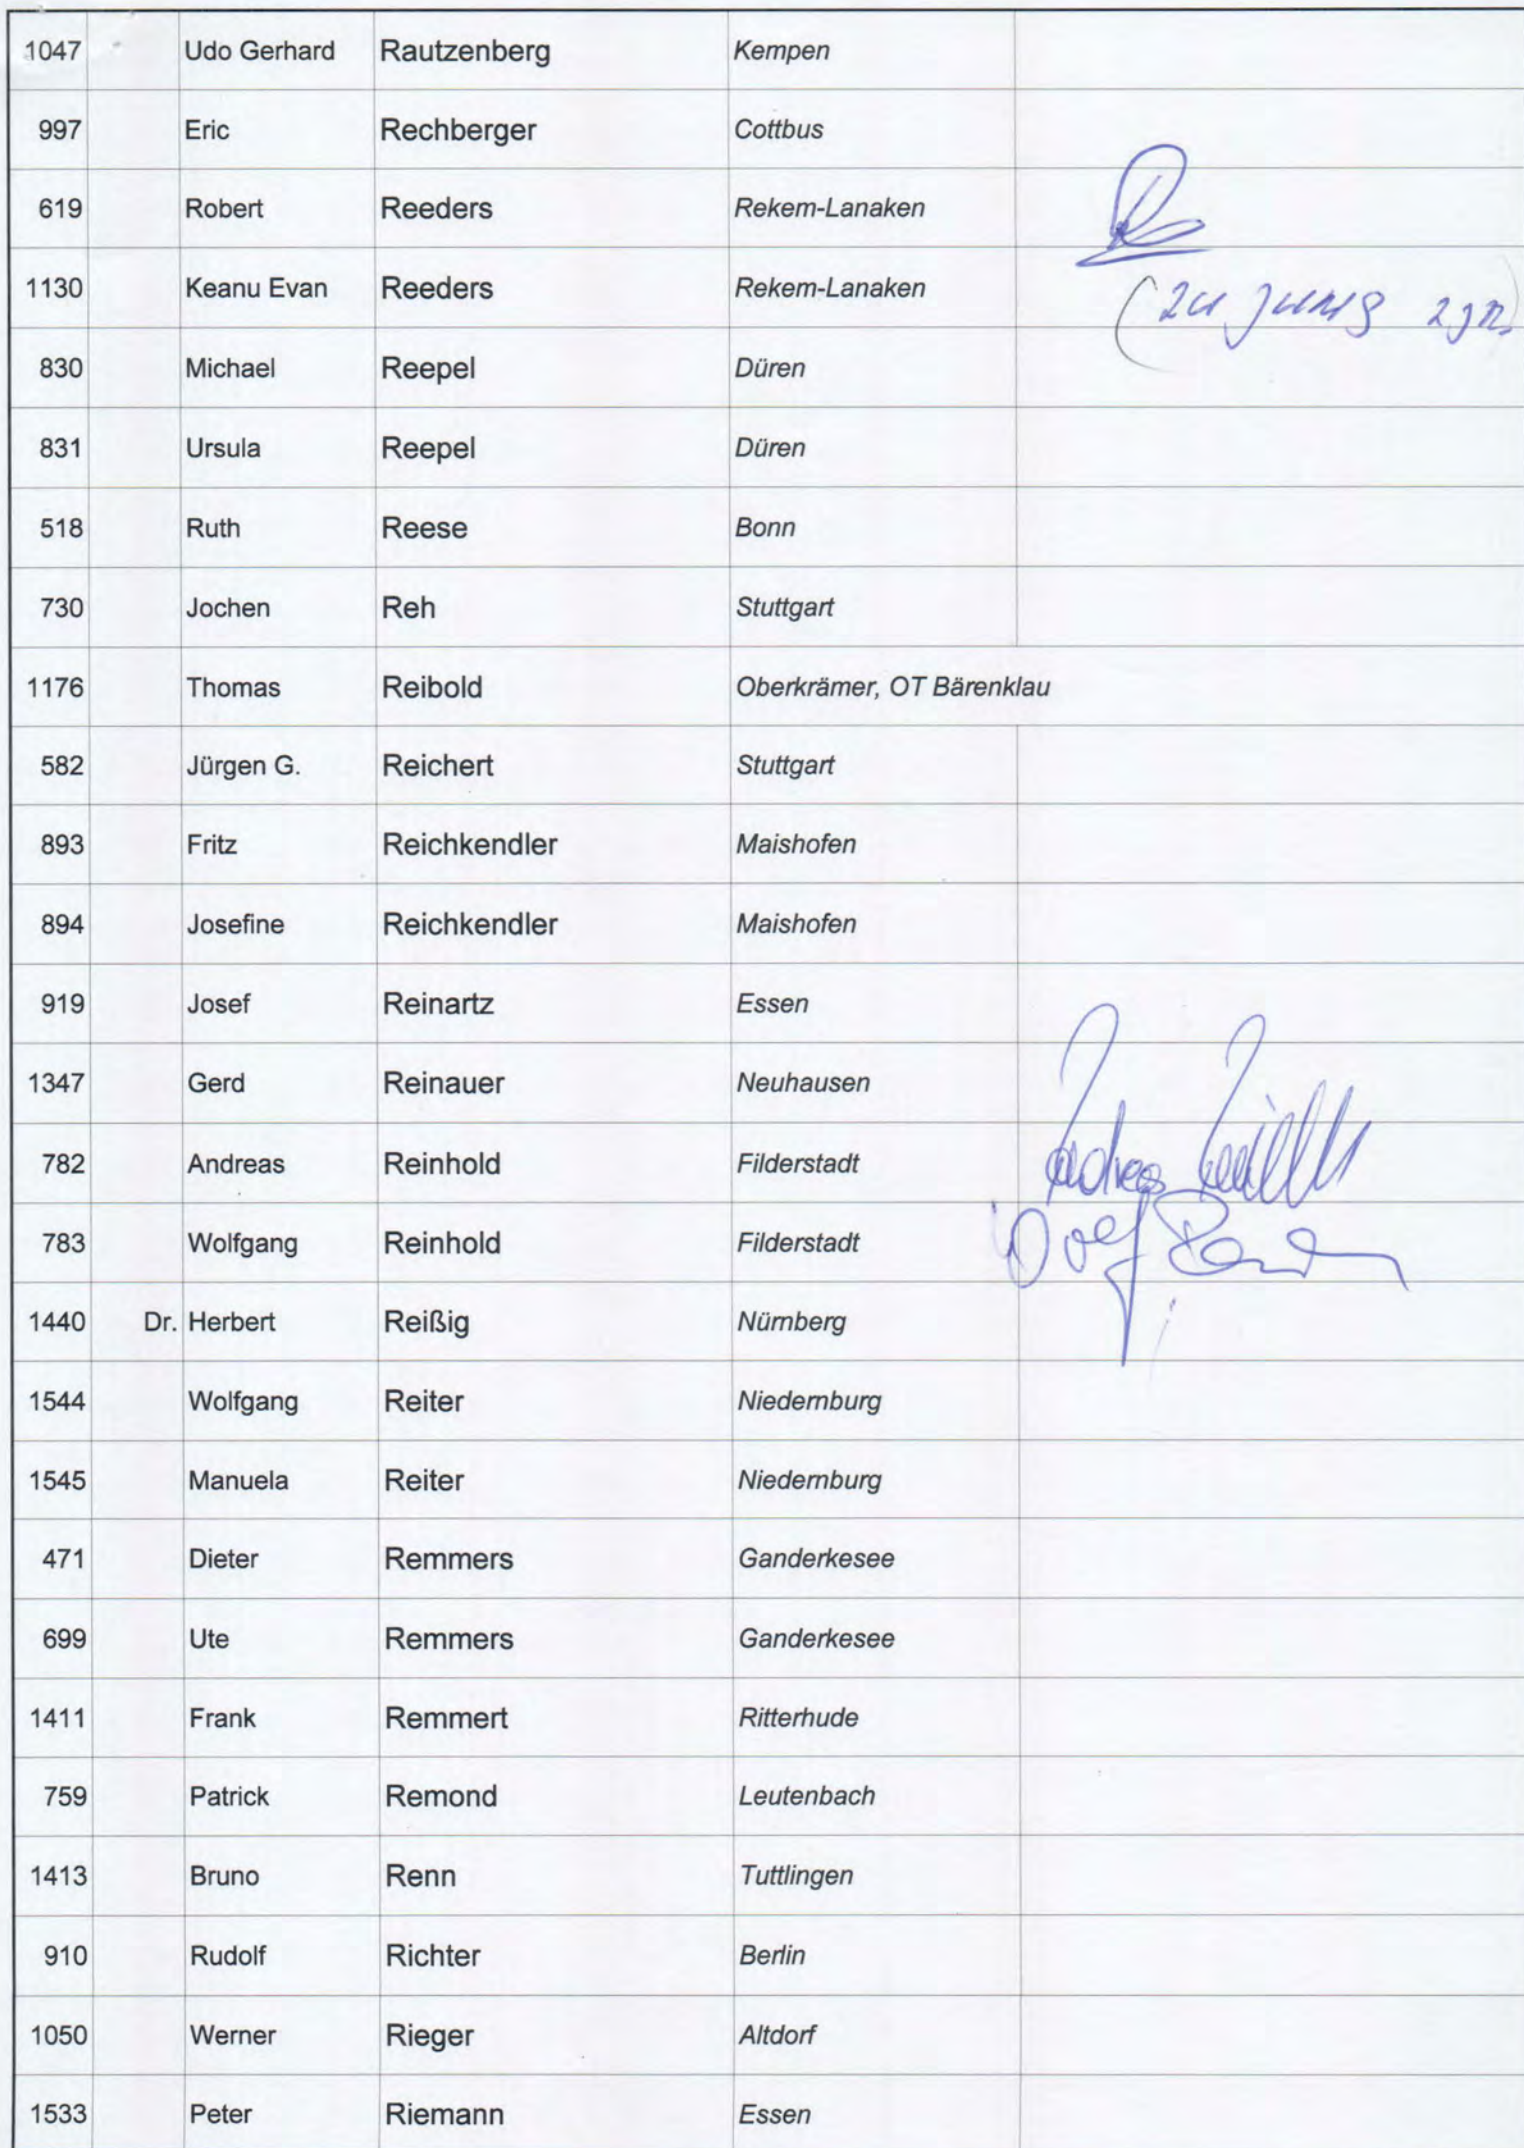 1047 Udo Gerhard Rautzenberg Kempen
997 Eric Rechberger Cottbus
619 Robert Reeders Rekem-Lanaken
1130 Keanu Evan Reeders Rekem-Lanaken (zu jung
830 Michael Reepel Düren
831 Ursula Reepel Düren
518 Ruth Reese Bonn
730 Jochen Reh Stuttgart
1176 Thomas Reibold Oberkrämer, OT Bärenklau
582 Jürgen G. Reichert Stuttgart
893 Fritz Reichkendler Maishofen
894 Josefine Reichkendler Maishofen
919 Josef Reinartz Essen
1347 Gerd Reinauer Neuhausen
782 Andreas Reinhold Filderstadt Andreas
783 Wolfgang Reinhold Filderstadt Wolf
1440 Dr. Herbert Reißig Nürnberg
1544 Wolfgang Reiter Niedernburg
1545 Manuela Reiter Niedernburg
471 Dieter Remmers Ganderkesee
699 Ute Remmers Ganderkesee
1411 Frank Remmert Ritterhude
759 Patrick Remond Leutenbach
1413 Bruno Renn Tuttlingen
910 Rudolf Richter Berlin
1050 Werner Rieger Altdorf
1533 Peter Riemann Essen